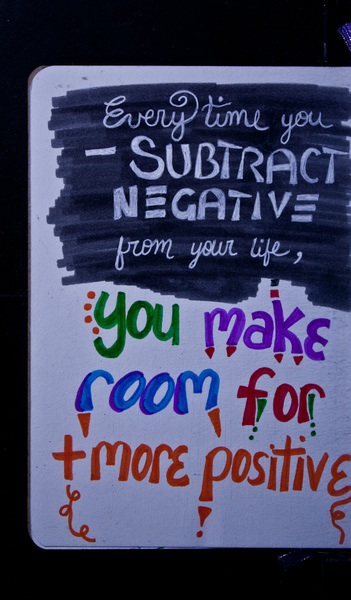 Every time you
- SUBTRACT
NEGATIVE
from your life,
you make
room for
+more positive